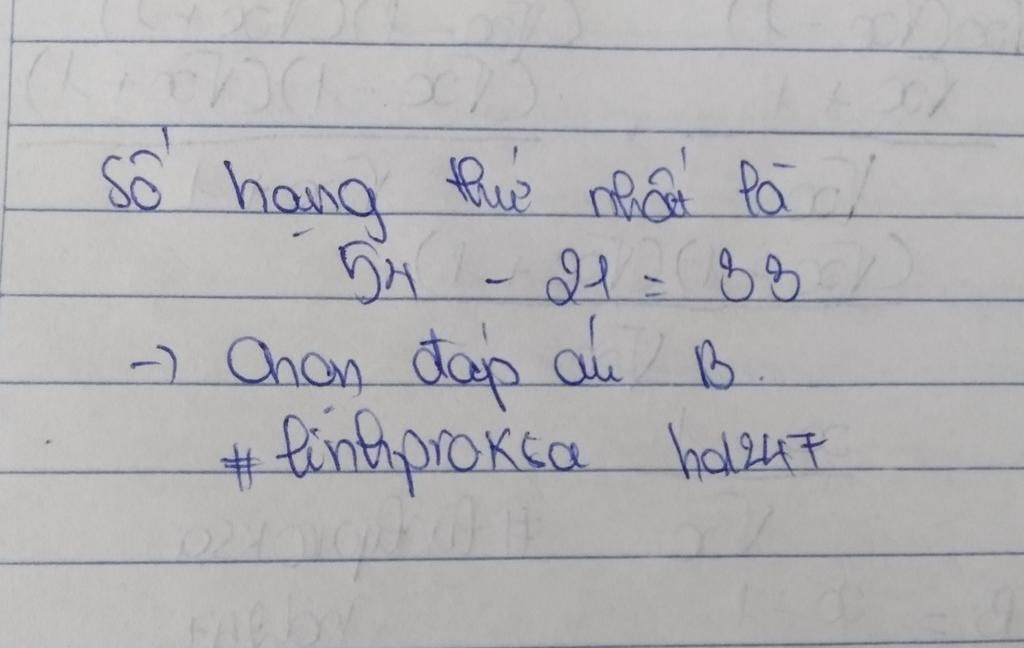 Số hạng thứ nhất là
54 - 21 = 33
→ Chọn đáp án B.
# linhproksa hd247